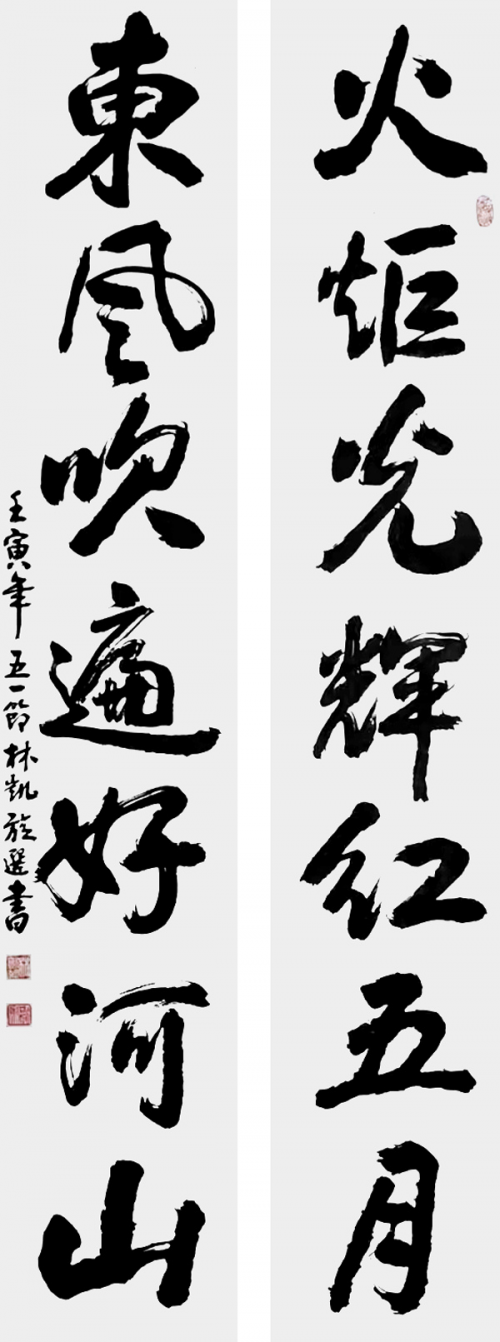 火炬光辉红五月
東風吹遍好河山
壬寅年五一節林凱旋選書